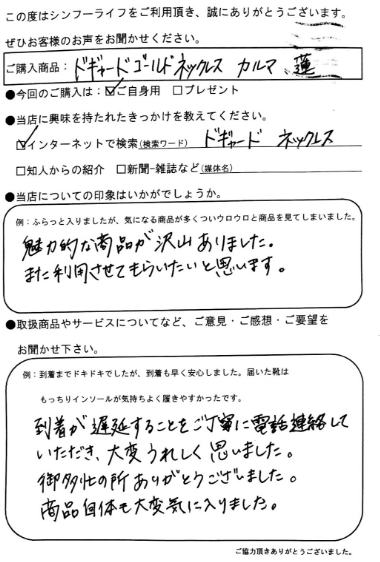 この度はシンフーライフをご利用頂き、誠にありがとうございます。
ぜひお客様のお声をお聞かせください。
ご購入商品：ドギャードゴールドネックレス カルマ 蓮
●今回のご購入は：☑ご自身用 □プレゼント
●当店に興味を持たれたきっかけを教えてください。
☑インターネットで検索(検索ワード) ドギャード ネックレス
□知人からの紹介 □新聞・雑誌など(媒体名)
●当店についての印象はいかがでしょうか。
例：ふらっと入りましたが、気になる商品が多くついウロウロと商品を見てしまいました。
魅力的な商品が沢山ありました。
また利用させてもらいたいと思います。
●取扱商品やサービスについてなど、ご意見・ご感想・ご要望を
お聞かせ下さい。
例：到着までドキドキでしたが、到着も早く安心しました。届いた靴は
もっちりインソールが気持ちよく履きやすかったです。
到着が遅延することをご丁寧に電話連絡して
いただき、大変うれしく思いました。
御多忙の所ありがとうございました。
商品自体も大変気に入りました。
ご協力頂きありがとうございました。